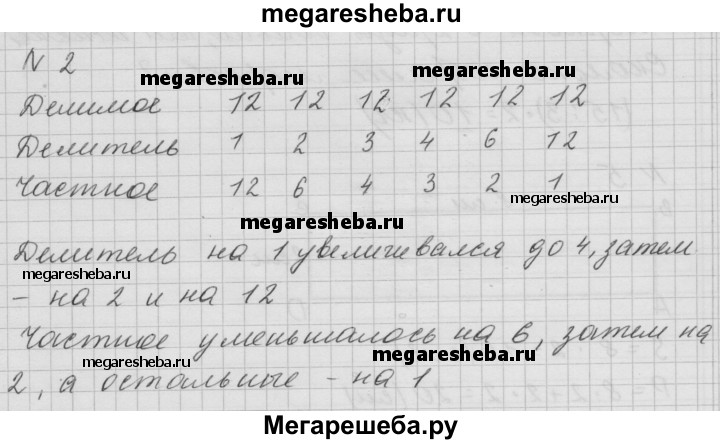 megaresheba.ru
N 2
megaresheba.ru
megaresheba.ru
Делимое 12 12 12 12 12 12
Делитель 1 2 3 4 6 12
Частное 12 6 4 3 2 1
megaresheba.ru
megaresheba.ru
Делитель на 1 увеличивался до 4, затем
megaresheba.ru
megaresheba.ru
- на 2 и на 12
Частное уменьшалось на 6, затем на
megaresheba.ru
megaresheba.ru
2, а остальные - на 1
Мегарешеба.ру